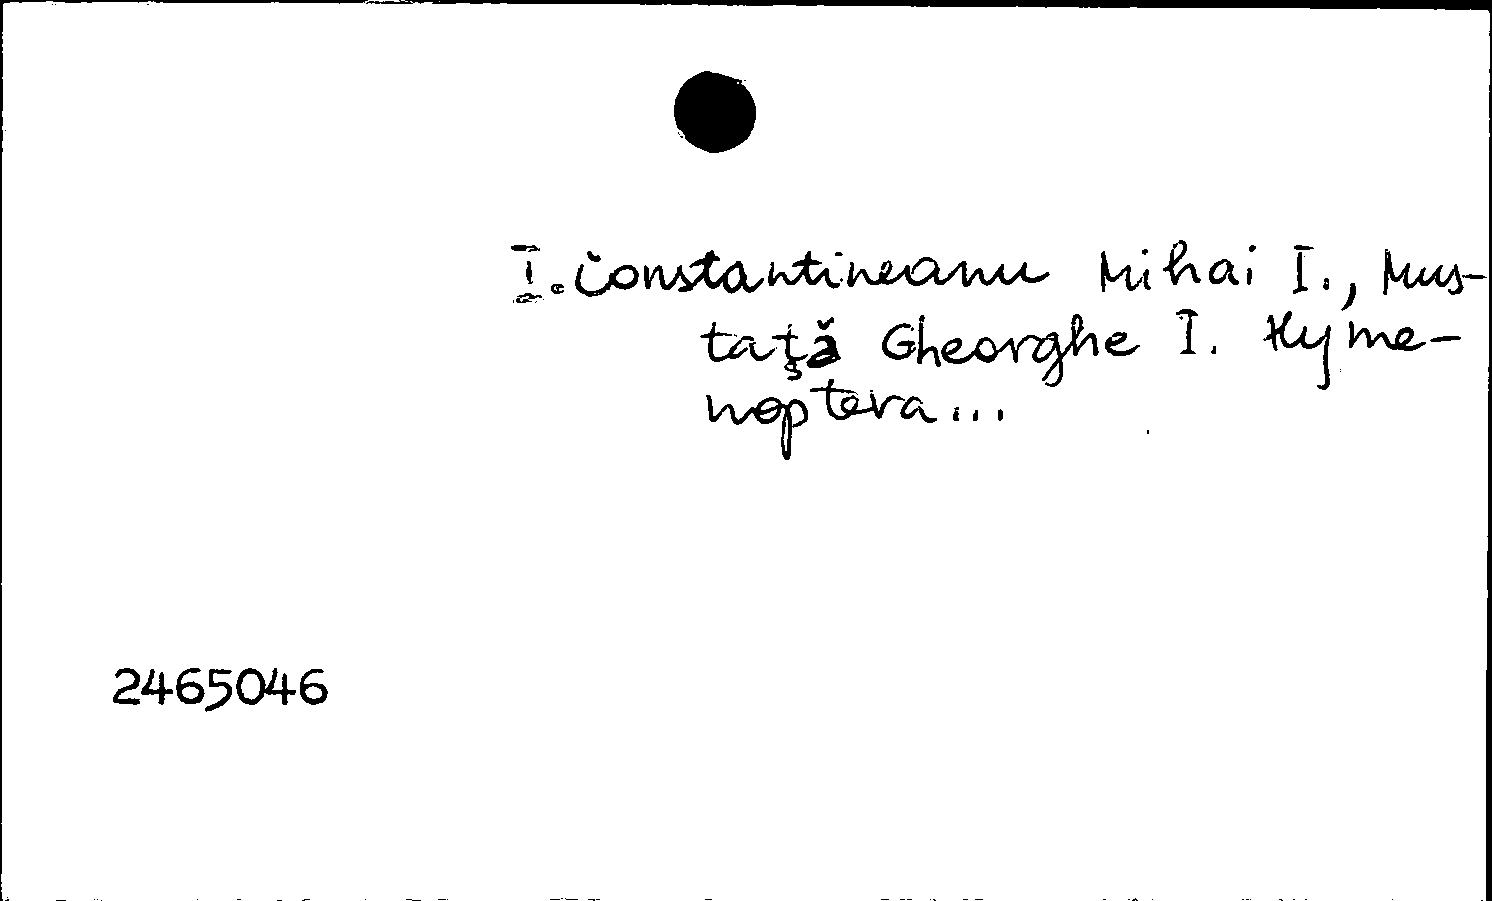 I. Constantineanu Mihai I., Mus-
taţă Gheorghe I. Hyme-
noptera...
2465046